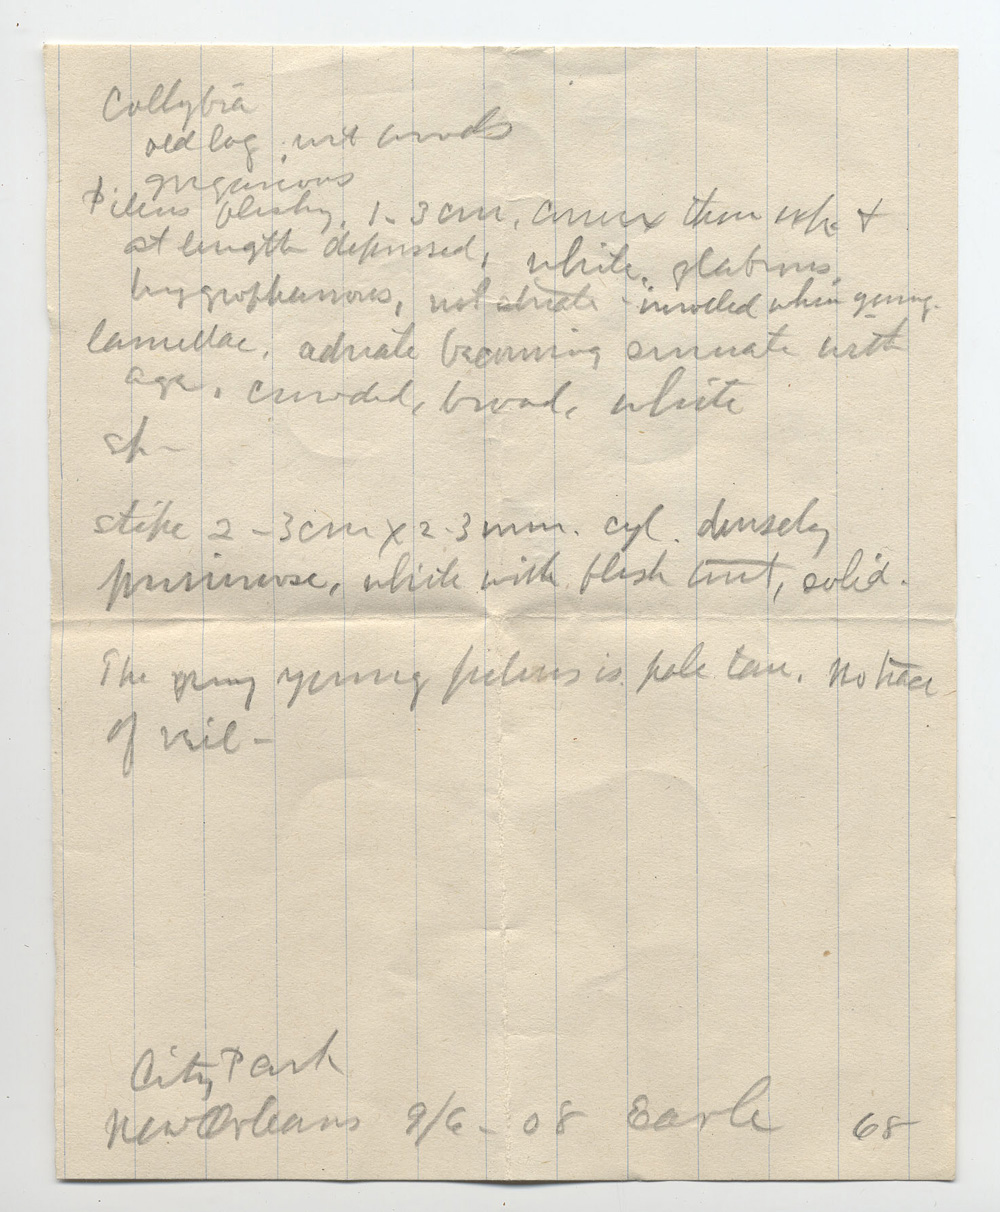 Collybia
old log, wet woods
gregarious
Pileus fleshy, 1-3 cm, convex then expl. &
at length depressed, white, glabrous,
hygrophanous, not striate - inrolled when young.
lamellae, adnate becoming sinuate with
age, crowded, broad, white
sp-
stipe 2-3 cm x 2-3 mm. cyl. densely
pruinose, white with flesh tint, solid.
The young pileus is pale tan. No trace
of veil-
City Park
New Orleans 9/6-08 Earle 68